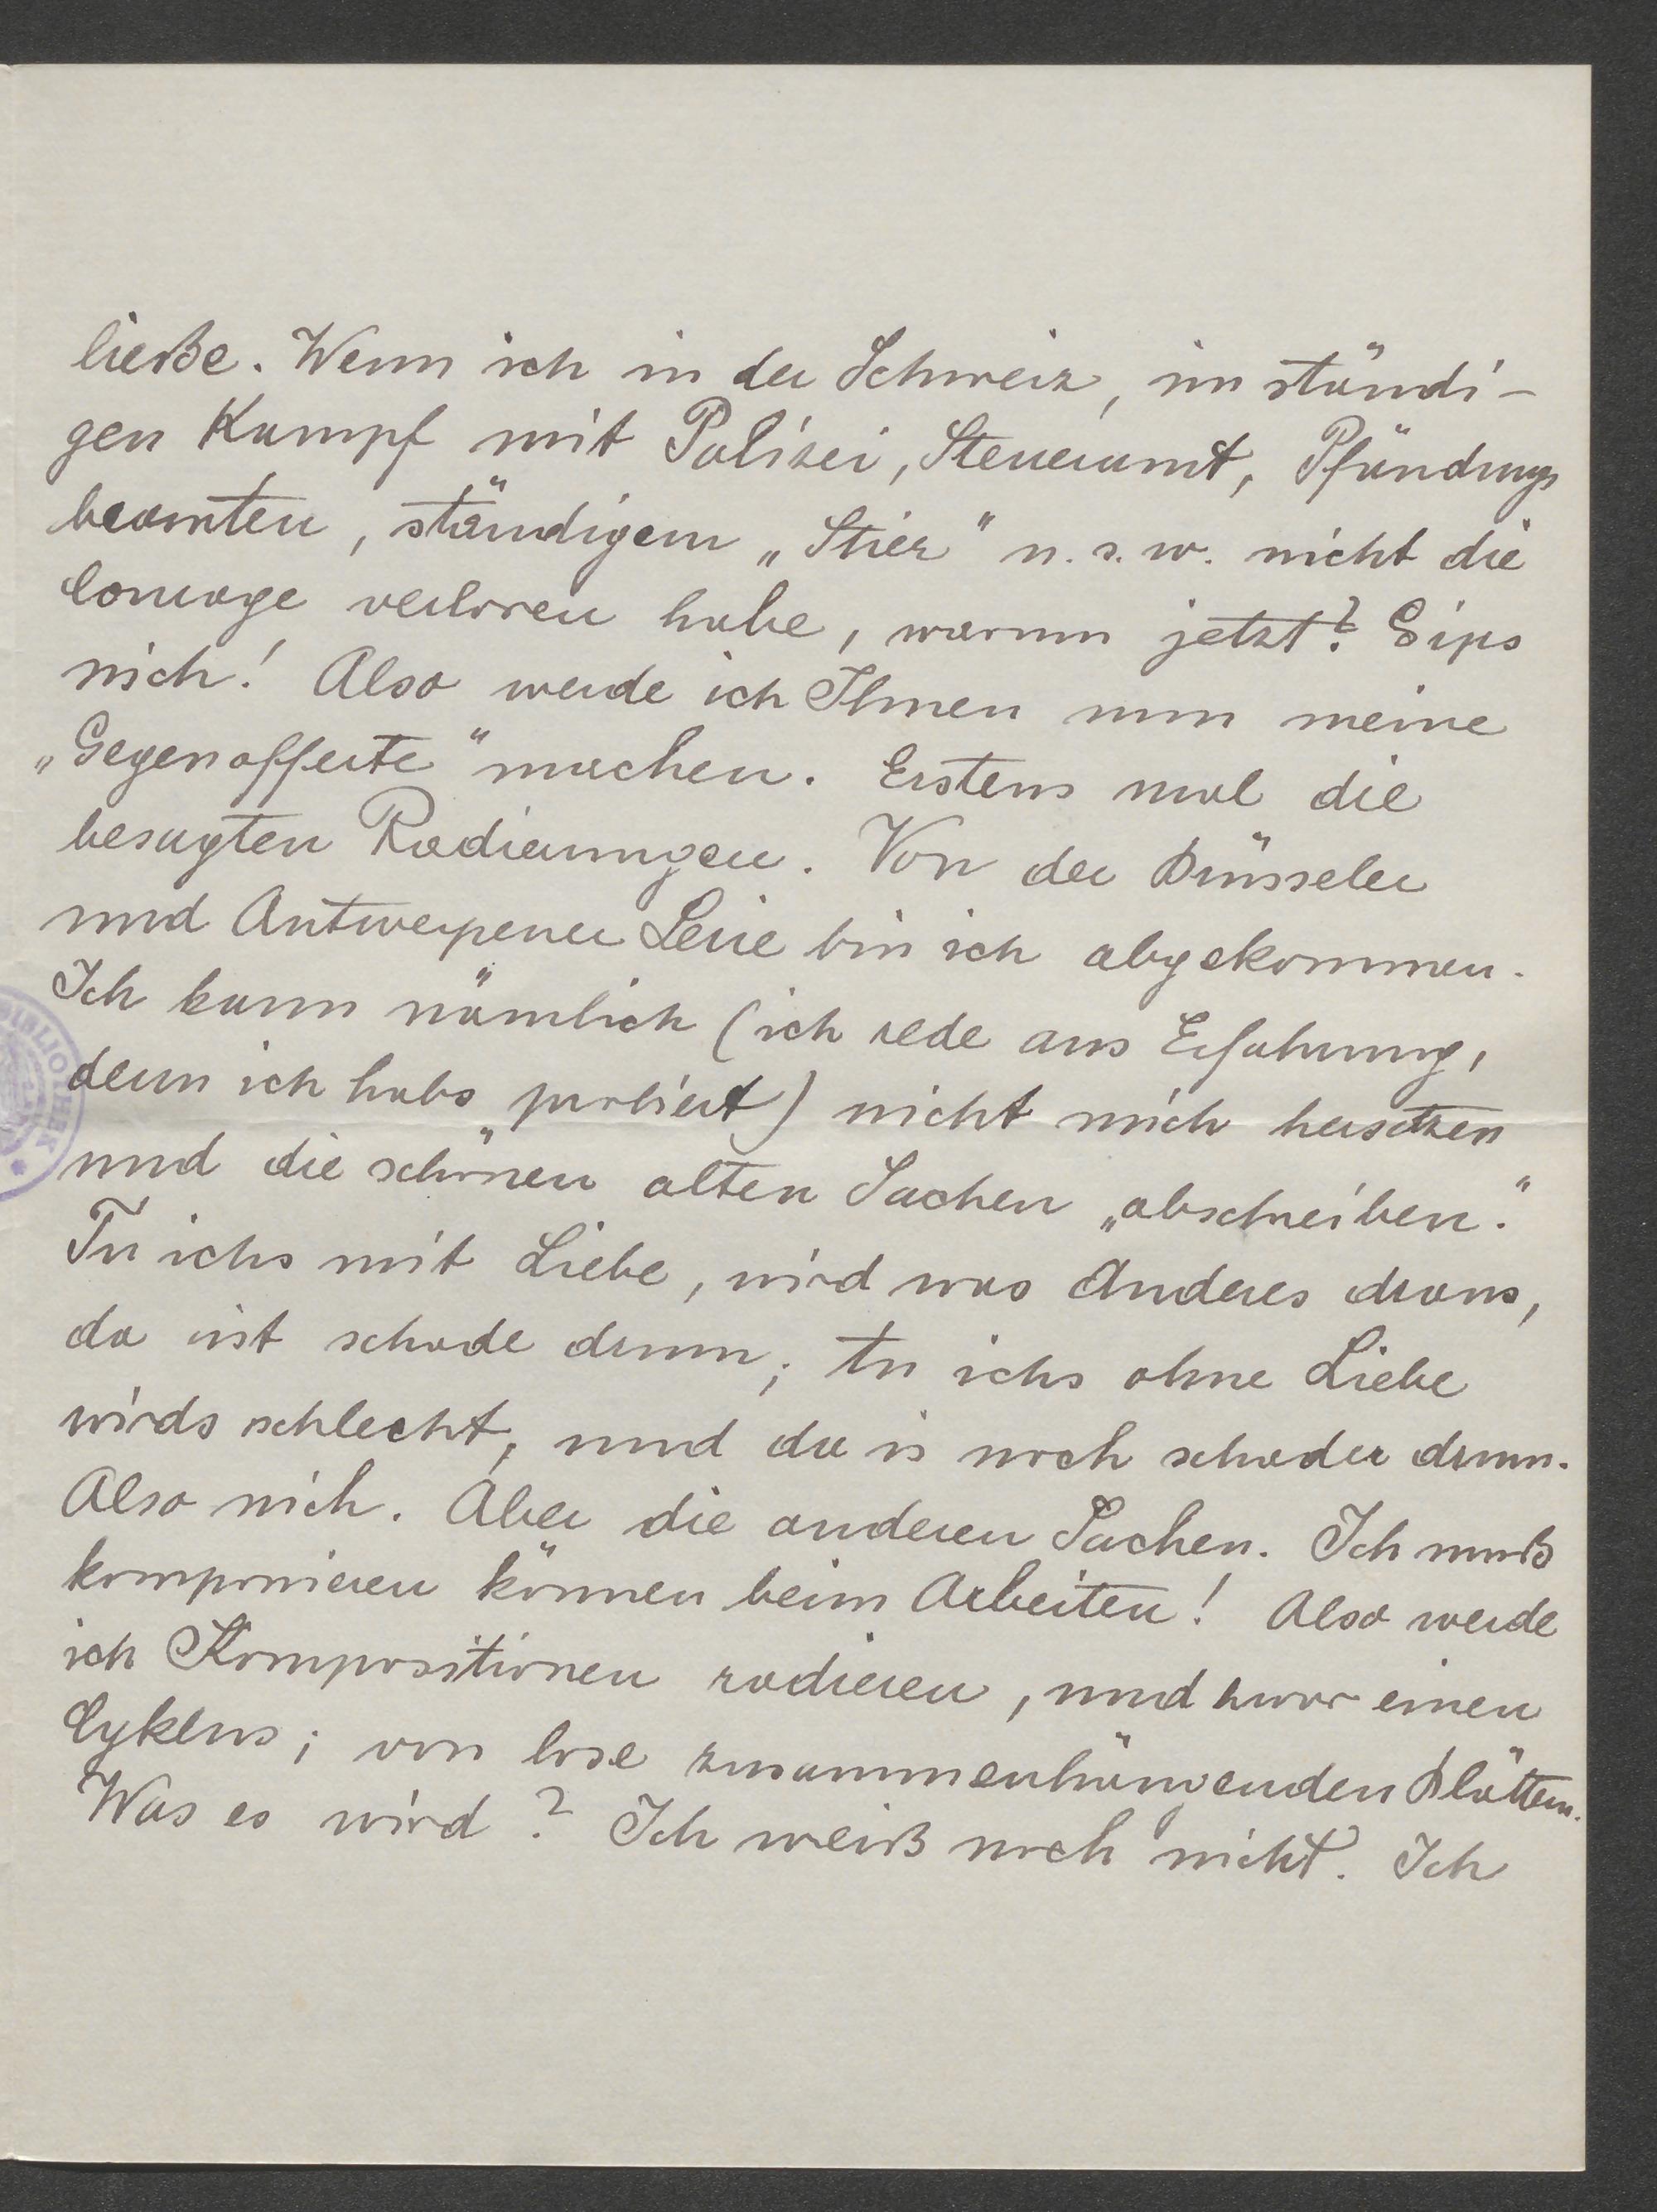 ließe. Wenn ich in der Schweiz, im ständi-
gen Kampf mit Polizei, Steueramt, Pfändungs
beamten, ständigem „Stier“ u. s. w. nicht die
Courage verloren habe, warum jetzt? Gips
nich! Also werde ich Ihnen nun meine
„Gegenofferte“ machen. Erstens mal die
besagten Radierungen. Von der Brüsseler
und Antwerpener Serie bin ich abgekommen.
Ich kann nämlich (ich rede aus Erfahrung,
denn ich habs probiert) nicht mich hersetzen
und die schönen alten Sachen „abschreiben.“
Tu ichs mit Liebe, wird was Anderes draus,
da ist schade drum; tu ichs ohne Liebe
wirds schlecht, und da is noch schader drum.
Also nich. Aber die anderen Sachen. Ich muß
komponieren können beim Arbeiten! Also werde
ich Kompositionen radieren, und zwar einen
Cyklus; von lose zusammenhängenden Blättern.
Was es wird? Ich weiß noch nicht. Ich
BIBLIOTHEK